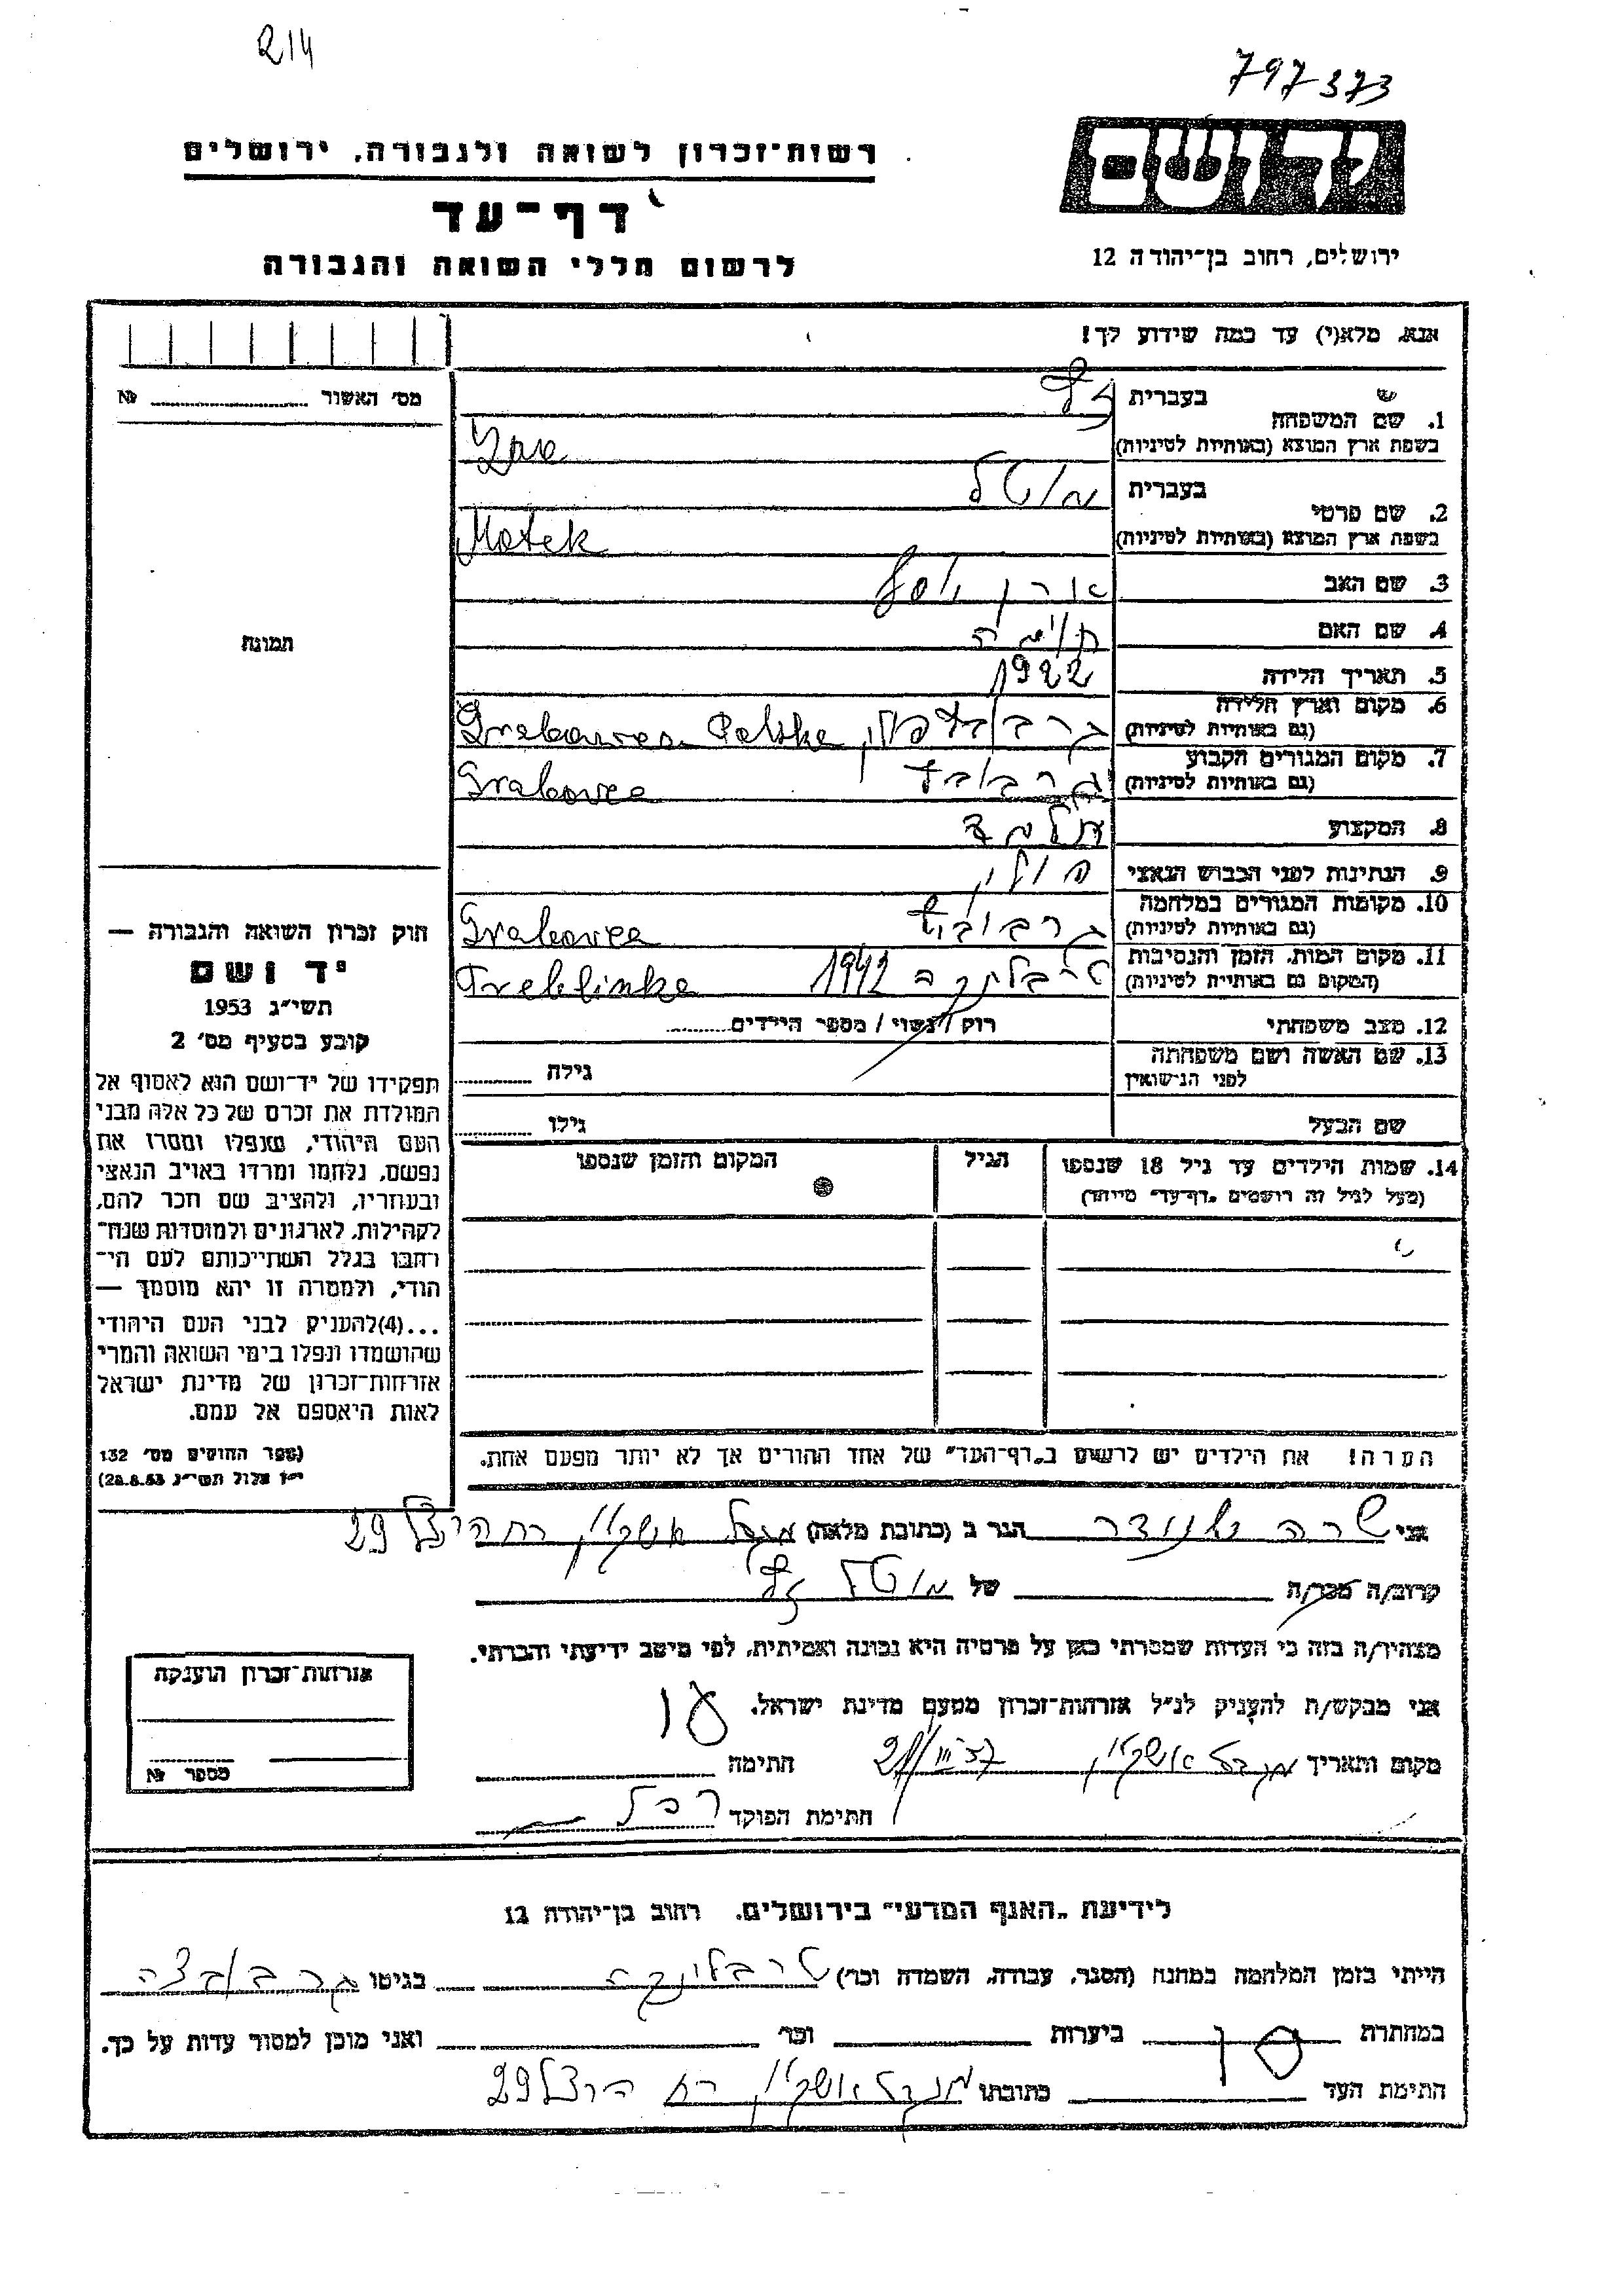 214
797373
יד ושם
רשות־זכרון לשואה ולגבורה, ירושלים
דף־עד
לרשום חללי השואה והגבורה
ירושלים, רחוב בן־יהודה 12
אנא, מלא(י) עד כמה שידוע לך!
מס׳ האשור №
1. שם המשפחה
בעברית
בשפת ארץ המוצא (באותיות לטיניות)
2. שם פרטי
בעברית מוטל
בשפת ארץ המוצא (באותיות לטיניות) Motek
3. שם האב אהרן יוסף
4. שם האם
5. תאריך הלידה 1922
6. מקום וארץ הלידה
(גם באותיות לטיניות) פולין, Polska
7. מקום המגורים הקבוע
(גם באותיות לטיניות) Grabovce
8. המקצוע
9. הנתינות לפני הכבוש הנאצי פולין
10. מקומות המגורים במלחמה
(גם באותיות לטיניות) Grabovce
11. מקום המות, הזמן והנסיבות
(המקום גם באותיות לטיניות) טרבלינקה 1942 Treblinka
12. מצב משפחתי רוק / נשוי / מספר הילדים
13. שם האשה ושם משפחתה
לפני הנישואין
גילה
שם הבעל גילו
14. שמות הילדים עד גיל 18 שנספו
(מעל לגיל זה רושמים „דף־עד״ מיוחד)
הגיל
המקום והזמן שנספו
הערה! את הילדים יש לרשום ב„דף־העד״ של אחד ההורים אך לא יותר מפעם אחת.
תמונה
חוק זכרון השואה והגבורה —
יד ושם
תשי״ג 1953
קובע בסעיף מס׳ 2
תפקידו של יד־ושם הוא לאסוף אל
המולדת את זכרם של כל אלה מבני
העם היהודי, שנפלו ומסרו את
נפשם, נלחמו ומרדו באויב הנאצי
ובעוזריו, ולהציב שם וזכר להם,
לקהילות, לארגונים ולמוסדות שנח־
רבו בגלל השתייכותם לעם הי־
הודי, ולמטרה זו יהא מוסמך —
...(4)להעניק לבני העם היהודי
שהושמדו ונפלו בימי השואה והמרי
אזרחות־זכרון של מדינת ישראל
לאות היאספם אל עמם.
(ספר החוקים מס׳ 132
י״ז אלול תשי״ג 28.8.53)
אני שרה הגר ב (כתובת מלאה) מגדל אשקלון רח הרצל 29
קרוב/ה מכר/ה של מוטל
מצהיר/ה בזה כי העדות שמסרתי כאן על פרטיה היא נכונה ואמיתית, לפי מיטב ידיעתי והכרתי.
אני מבקש/ת להעניק לנ״ל אזרחות־זכרון מטעם מדינת ישראל.
מקום ותאריך מגדל אשקלון 21/III חתימה
חתימת הפוקד
אזרחות־זכרון הוענקה
מספר №
לידיעת „האגף המדעי״ בירושלים. רחוב בן־יהודה 12
הייתי בזמן המלחמה במחנה (הסגר, עבודה, השמדה וכו׳) טרבלינקה בגיטו
במחתרת ביערות וכו׳ ואני מוכן למסור עדות על כך.
חתימת העד כתובתו מגדל אשקלון רח הרצל 29